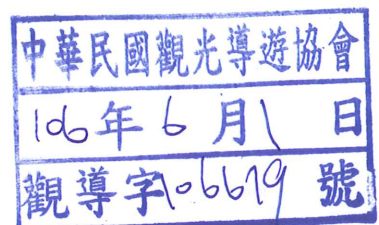 中華民國觀光導遊協會
106年6月1日
觀導字106679號